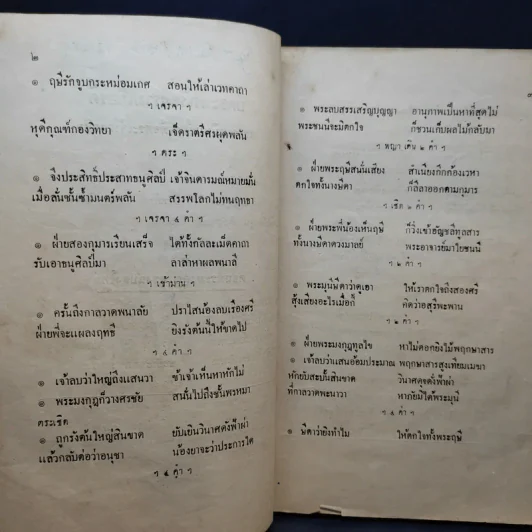 ๒
๏ ฤษีรักจูบกระหม่อมเกศ สอนให้เล่าเวทคาถา
ฯ เจรจา ฯ
หุตีกูณฑ์กองวิทยา เจ็ดราตรีศรผุดพลัน
ฯ ตระ ฯ
๏ จึงประสิทธิ์ประสาทธนูศิลป์ เจ้าจินดารมณ์หมายมั่น
เมื่อลั่นซั้นซ้ำมนตร์พลัน สรรพโลกไม่ทนฤทธา
ฯ เจรจา ๔ คำ ฯ
๏ ฝ่ายสองกุมารเรียนเสร็จ ได้ทั้งกัลละเม็ดคาถา
รับเอาธนูศิลป์มา ลาล่าหาผลพนาลี
ฯ เข้าม่าน ฯ
๏ ครั้นถึงกาลวาดพนาลัย ปราไสน้องลบเรืองศรี
ฝ่ายพี่จะแผลงฤทธี ยิงรังต้นนี้ให้ขาดไป
ฯ ๔ คำ ฯ
๏ เจ้าลบว่าใหญ่ถึงแสนวา ข้าเจ้าเห็นหาหักไม่
๏ พระมงกุฎก็วางศรชัย สนั่นไปถึงชั้นพรหมา
ตระเชิด
๏ ถูกรังต้นใหญ่สินขาด ยับเยินวินาศดังฟ้าผ่า
แล้วกลับต่อว่าอนุชา น้องยาจะว่าประการใด
ฯ ๕ คำ ฯ
๓
๏ พระลบสรรเสริญบุญญา อานุภาพเป็นหาที่สุดไม่
พระชนนีจะมิตกใจ ก็ชวนเก็บผลไม้กลับมา
ฯ พญาเดิน ๒ คำ ฯ
๏ ฝ่ายพระฤษีสนั่นเสียง สำเนียงกึกก้องเวหา
ตกใจทั้งนางษีดา ก็ลีลาออกตามกุมาร
ฯ เชิด ๒ คำ ฯ
๏ ฝ่ายพระพี่น้องเห็นฤษี ก็วิ่งเข้าอัญชลีทูลสาร
ทั้งนางษีดาดวงมาลย์ พระอาจารย์มาไยชนนี
ฯ ๒ คำ ฯ
๏ พระมุนีษีดาว่าดูเอา ให้เราตกใจถึงสองศรี
สุ้งเสียงอะไรเมื่อกี้ คิดว่าอสุรีพะพาน
ฯ ๒ คำ ฯ
๏ ฝ่ายพระมงกุฎทูลไข หาไม่ดอกยิงไม้พฤกษาสาร
๏ เจ้าลบว่าแสนอ้อมประมาณ พฤกษาสูงเทียมเมฆา
หักยับสะบั้นสินขาด วินาศดุจดั่งฟ้าผ่า
ที่กาลวาดพะนาวา หาภัยมิได้พระมุนี
ฯ ๔ คำ ฯ
๏ ษีดาว่ายิงทำไม ให้ตกใจทั้งพระฤษี